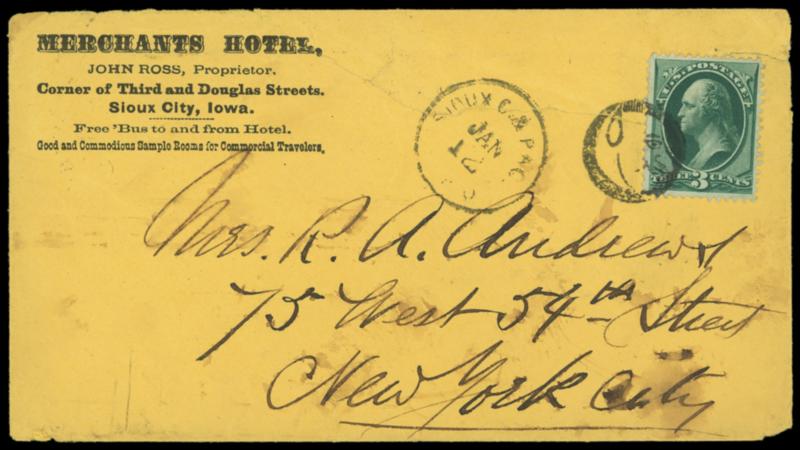 MERCHANTS HOTEL,
JOHN ROSS, Proprietor.
Corner of Third and Douglas Streets.
Sioux City, Iowa.
Free 'Bus to and from Hotel.
Good and Commodious Sample Rooms for Commercial Travelers.
SIOUX C. & P
JAN
U.S. POSTAGE
THREE 3 CENTS
Mrs. R. A. Andrews
75 West 54th Street
New York City